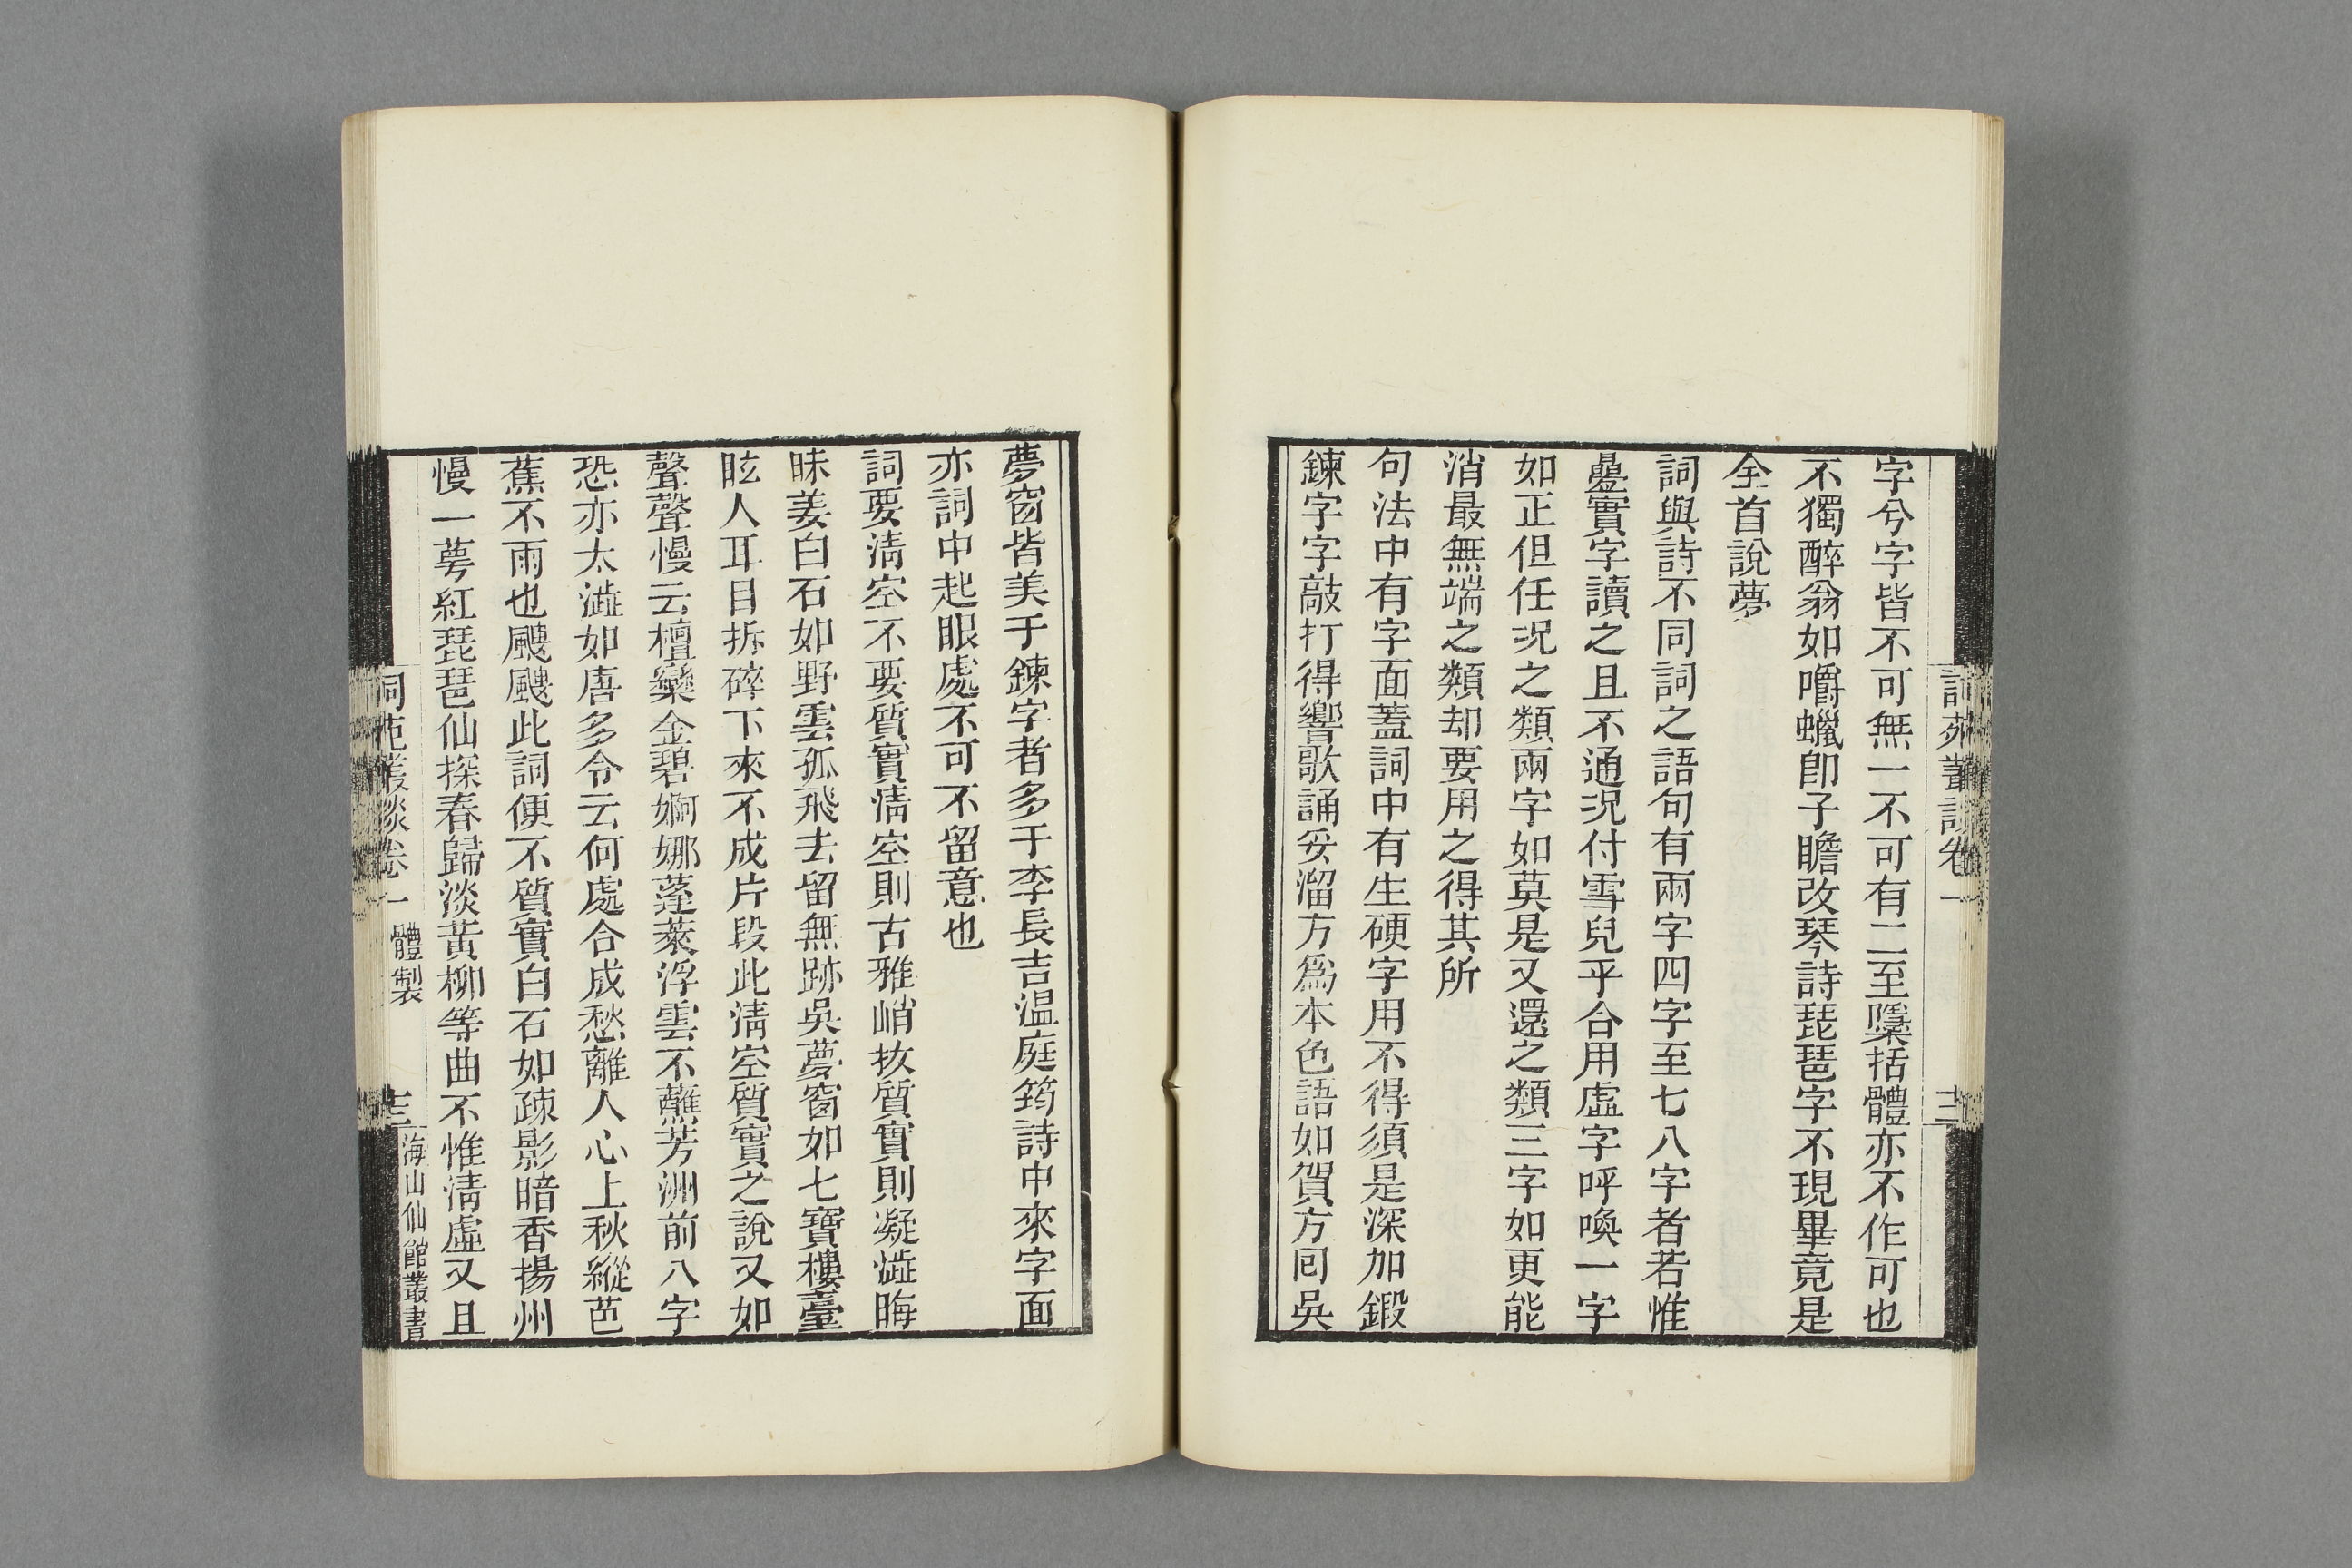 詞苑叢談卷一
字兮字皆不可無一不可有二至檃括體亦不作可也
不獨醉翁如嚼蠟卽子瞻改琴詩琵琶字不現畢竟是
全首說夢
詞與詩不同詞之語句有兩字四字至七八字者若惟
疊實字讀之且不通況付雪兒乎合用虛字呼喚一字
如正但任況之類兩字如莫是又還之類三字如更能
消最無端之類却要用之得其所
句法中有字面蓋詞中有生硬字用不得須是深加鍛
鍊字字敲打得響歌誦妥溜方爲本色語如賀方囘吳
夢窗皆美于鍊字者多于李長吉温庭筠詩中來字面
亦詞中起眼處不可不留意也
詞要淸空不要質實淸空則古雅峭拔質實則凝澁晦
昧姜白石如野雲孤飛去留無跡吳夢窗如七寶樓臺
眩人耳目拆碎下來不成片段此淸空質實之說又如
聲聲慢云檀欒金碧婀娜蓬萊浮雲不蘸芳洲前八字
恐亦太澁如唐多令云何處合成愁離人心上秋縱芭
蕉不雨也颼颼此詞便不質實白石如疎影暗香揚州
慢一萼紅琵琶仙探春歸淡黃柳等曲不惟淸虛又且
詞苑叢談卷一 體製
海山仙館叢書